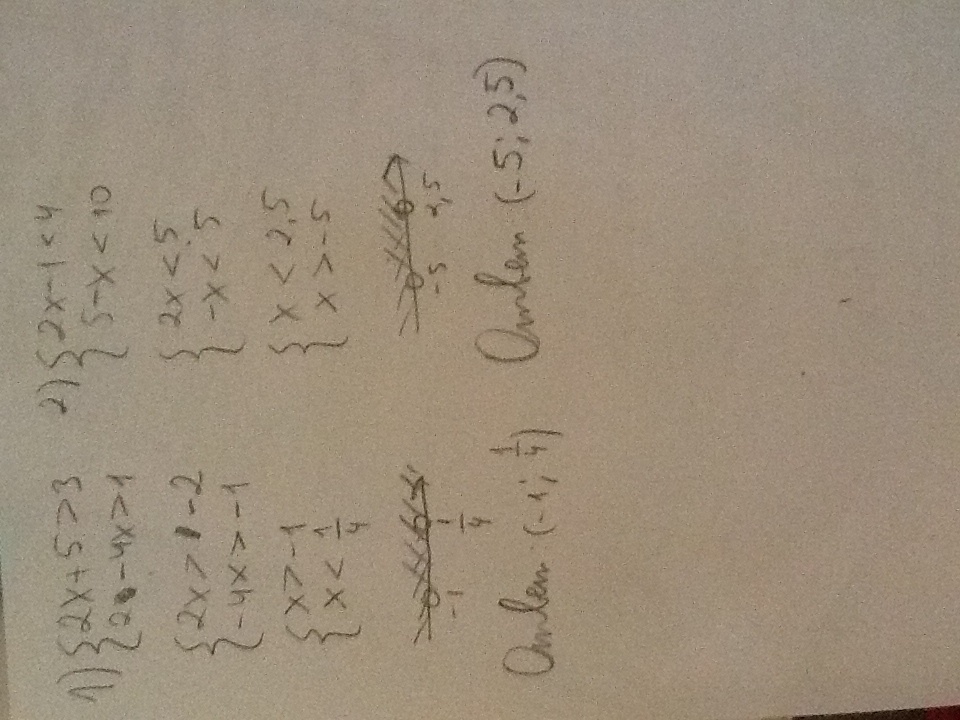 1) { 2x+5>3
{ 2-4x>1
{ 2x>-2
{ -4x>-1
{ x>-1
{ x<1/4
-1 1/4
Ответ: (-1; 1/4)
2) { 2x-1<4
{ 5-x<10
{ 2x<5
{ -x<5
{ x<2,5
{ x>-5
-5 2,5
Ответ: (-5; 2,5)